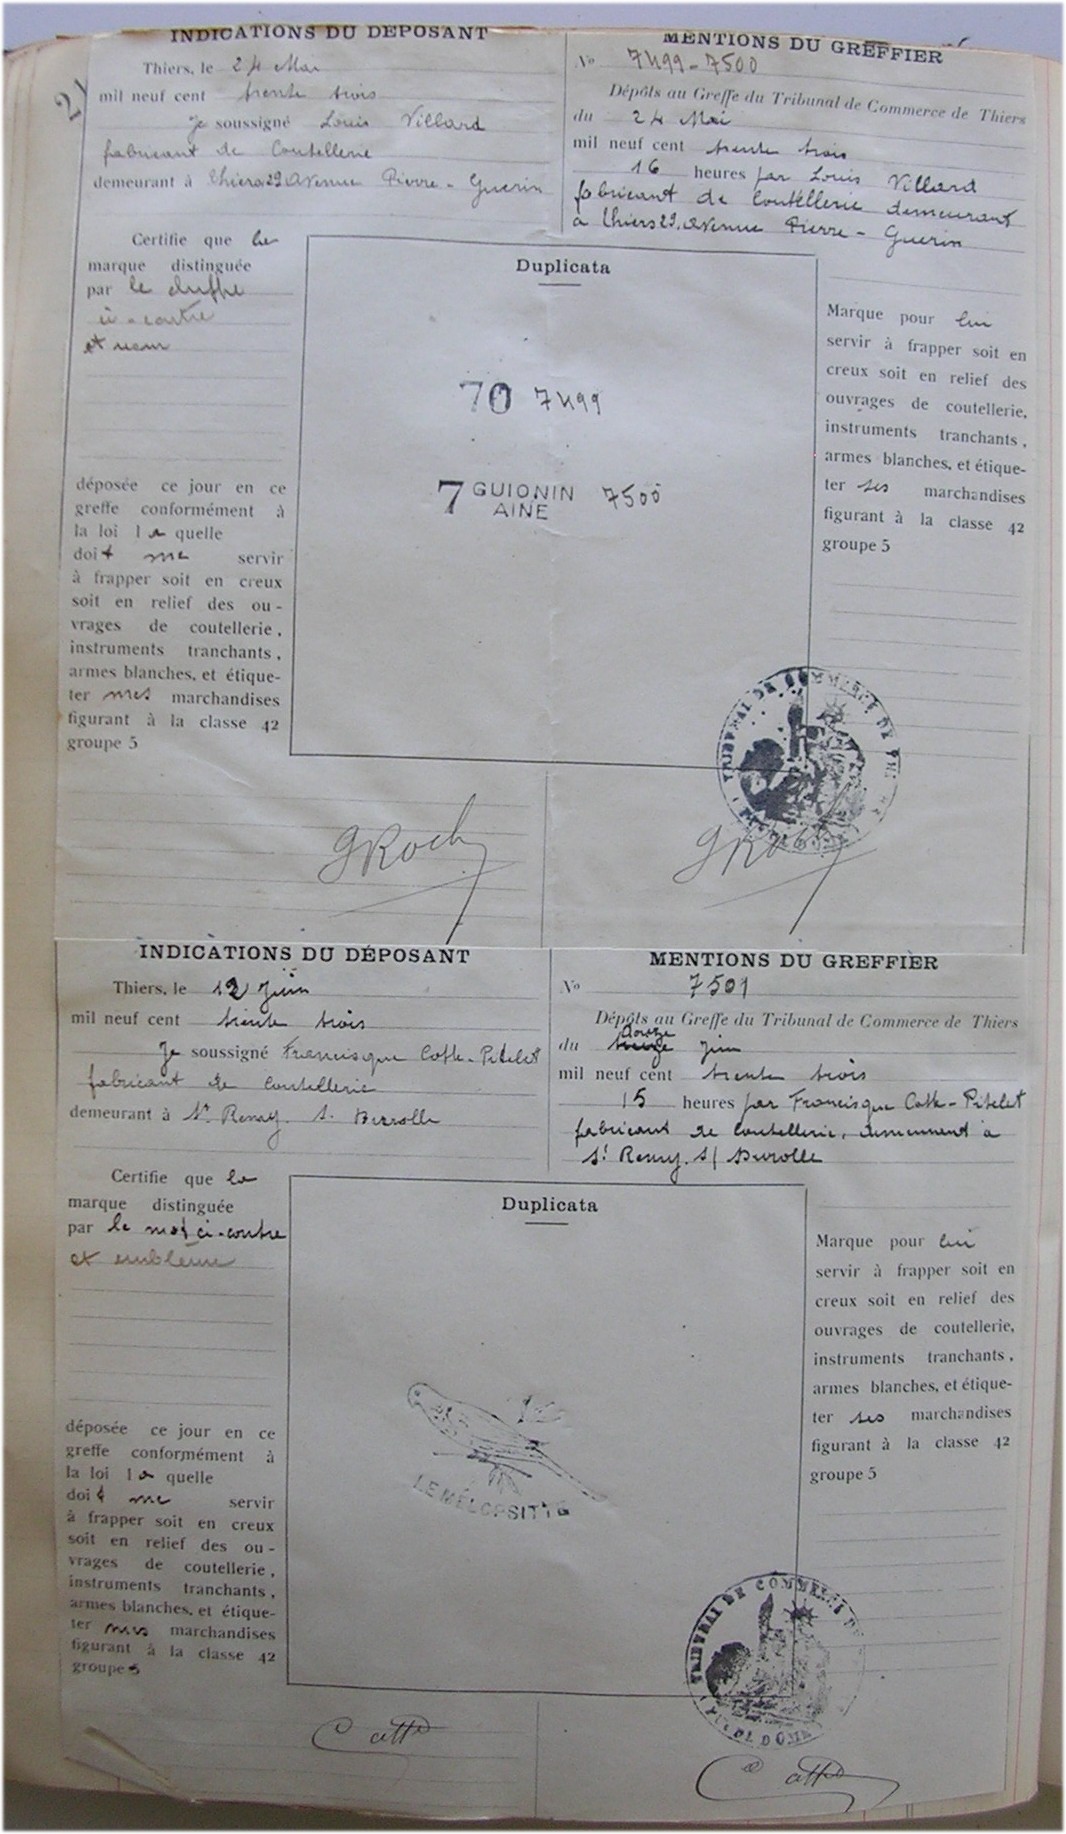 21
INDICATIONS DU DÉPOSANT
Thiers, le 24 Mai
mil neuf cent trente trois
Je soussigné Louis Villard
fabricant de Coutellerie
demeurant à Thiers 29 Avenue Pierre-Guerin
Certifie que la
marque distinguée
par le chiffre
ci-contre
et nom
déposée ce jour en ce
greffe conformément à
la loi la quelle
doit me servir
à frapper soit en creux
soit en relief des ou-
vrages de coutellerie,
instruments tranchants,
armes blanches, et étique-
ter mes marchandises
figurant à la classe 42
groupe 5
MENTIONS DU GREFFIER
No 7499-7500
Dépôts au Greffe du Tribunal de Commerce de Thiers
du 24 Mai
mil neuf cent trente trois
16 heures par Louis Villard
fabricant de Coutellerie demeurant
à Thiers 29, Avenue Pierre-Guerin
Duplicata
70 7499
7 GUIONIN 7500
AINE
Marque pour lui
servir à frapper soit en
creux soit en relief des
ouvrages de coutellerie,
instruments tranchants,
armes blanches, et étique-
ter ses marchandises
figurant à la classe 42
groupe 5
TRIBUNAL DE COMMERCE DE
GRoch
GRoch
INDICATIONS DU DÉPOSANT
Thiers, le 12 Juin
mil neuf cent trente trois
Je soussigné Francisque Cotte-Pitelet
fabricant de Coutellerie
demeurant à St Remy. s. Durolle
Certifie que la
marque distinguée
par le mot ci-contre
et emblème
déposée ce jour en ce
greffe conformément à
la loi la quelle
doit me servir
à frapper soit en creux
soit en relief des ou-
vrages de coutellerie,
instruments tranchants,
armes blanches, et étique-
ter mes marchandises
figurant à la classe 42
groupe 5
MENTIONS DU GREFFIER
No 7501
Dépôts au Greffe du Tribunal de Commerce de Thiers
douze
du Juin
mil neuf cent trente trois
15 heures par Francisque Cotte-Pitelet
fabricant de Coutellerie, demeurant à
St Remy. s/ Durolle
Duplicata
LE MÉLOPSITTE
Marque pour lui
servir à frapper soit en
creux soit en relief des
ouvrages de coutellerie,
instruments tranchants,
armes blanches, et étique-
ter ses marchandises
figurant à la classe 42
groupe 5
TRIBUNAL DE COMMERCE DE
PUY DE DOME
Cotte
Cotte